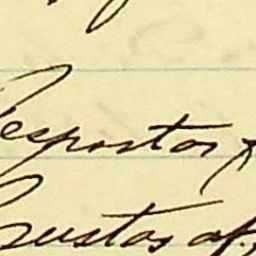 Respostas
Custas af